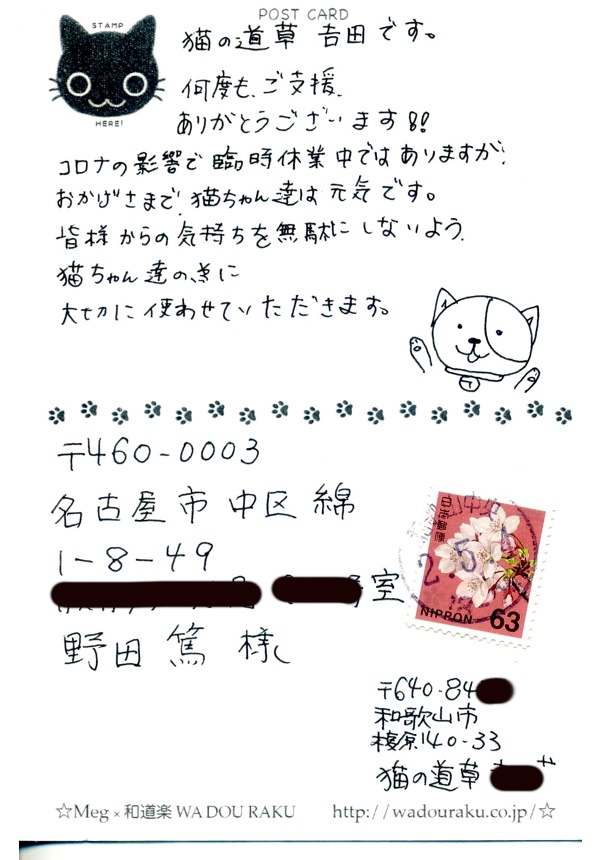 POST CARD
STAMP
HERE!
猫の道草 吉田です。
何度も、ご支援、
ありがとうございます!!
コロナの影響で臨時休業中ではありますが、
おかげさまで、猫ちゃん達は元気です。
皆様からの気持ちを無駄にしないよう、
猫ちゃん達の為に
大切に使わせていただきます。
〒460-0003
名古屋市中区錦
1-8-49
室
野田 篤 様
日本郵便
NIPPON 63
〒640-84
和歌山市
榎原140-33
猫の道草
☆Meg×和道楽 WA DOU RAKU http://wadouraku.co.jp/☆